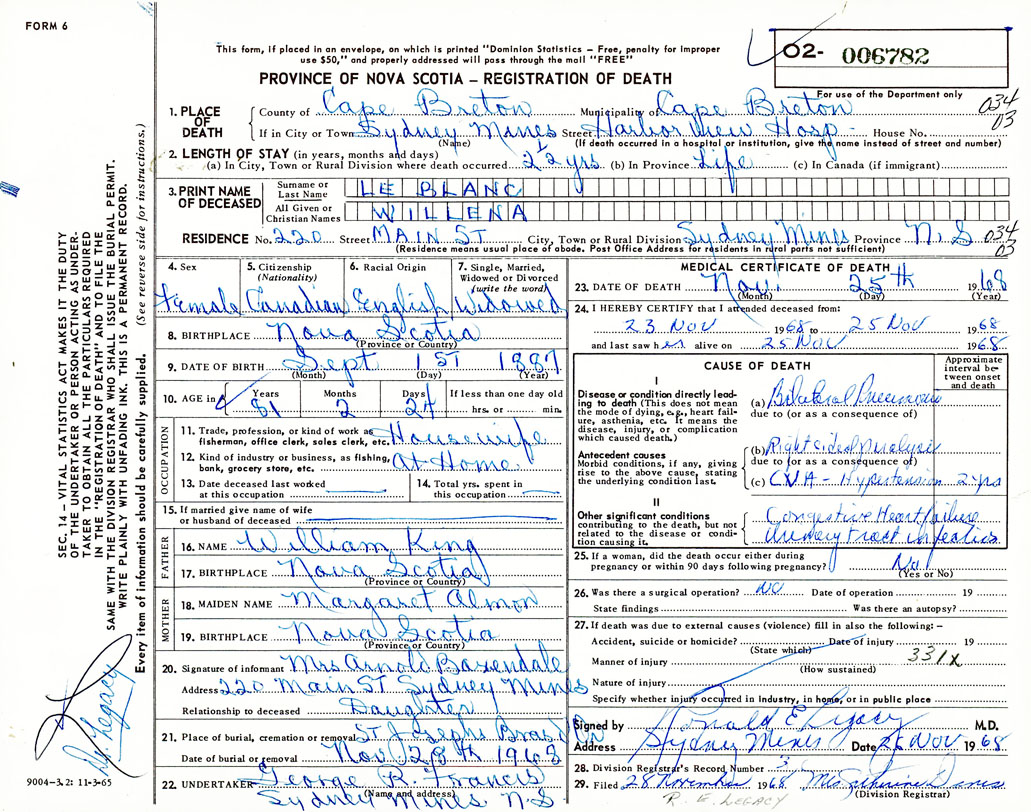 FORM 6
This form, if placed in an envelope, on which is printed "Dominion Statistics – Free, penalty for improper
use $50," and properly addressed will pass through the mail "FREE"
PROVINCE OF NOVA SCOTIA – REGISTRATION OF DEATH
O2- 006782
For use of the Department only
034
03
1. PLACE OF DEATH
County of Cape Breton Municipality of Cape Breton
If in City or Town Sydney Mines Street Harbor View Hosp - House No.
(Name) (If death occurred in a hospital or institution, give the name instead of street and number)
2. LENGTH OF STAY (in years, months and days)
(a) In City, Town or Rural Division where death occurred 2 1/2 yrs (b) In Province Life (c) In Canada (if immigrant)
3. PRINT NAME OF DECEASED
Surname or Last Name LE BLANC
All Given or Christian Names WILLENA
RESIDENCE No. 220 Street MAIN ST City, Town or Rural Division Sydney Mines Province N.S
034
03
(Residence means usual place of abode. Post Office Address for residents in rural parts not sufficient)
4. Sex Female
5. Citizenship (Nationality) Canadian
6. Racial Origin English
7. Single, Married, Widowed or Divorced (write the word) Widowed
8. BIRTHPLACE Nova Scotia
(Province or Country)
9. DATE OF BIRTH Sept 1ST 1887
(Month) (Day) (Year)
10. AGE in Years 81 Months 2 Days 24 If less than one day old hrs. or min.
OCCUPATION
11. Trade, profession, or kind of work as fisherman, office clerk, sales clerk, etc. Housewife
12. Kind of industry or business, as fishing, bank, grocery store, etc. At Home
13. Date deceased last worked at this occupation
14. Total yrs. spent in this occupation
15. If married give name of wife or husband of deceased
FATHER
16. NAME William King
17. BIRTHPLACE Nova Scotia
(Province or Country)
MOTHER
18. MAIDEN NAME Margaret Almon
19. BIRTHPLACE Nova Scotia
(Province or Country)
20. Signature of informant Mrs Arnold Baxendale
Address 220 Main ST Sydney Mines
Relationship to deceased Daughter
21. Place of burial, cremation or removal ST Josephs Bras
Date of burial or removal Nov 28th 1968
22. UNDERTAKER George R. Francis
(Name and address)
Sydney Mines N-S
MEDICAL CERTIFICATE OF DEATH
23. DATE OF DEATH Nov. 25th 1968
(Month) (Day) (Year)
24. I HEREBY CERTIFY that I attended deceased from:
23 NOV 1968 to 25 NOV 1968
and last saw her alive on 25 NOV 1968
CAUSE OF DEATH
Approximate interval between onset and death
I
Disease or condition directly leading to death (This does not mean the mode of dying, e.g., heart failure, asthenia, etc. It means the disease, injury, or complication which caused death.)
(a) Bilateral Pneumonia
due to (or as a consequence of)
Antecedent causes
Morbid conditions, if any, giving rise to the above cause, stating the underlying condition last.
(b) Right sided Paralysis
due to (or as a consequence of)
(c) CVA - Hypertension 2 yrs
II
Other significant conditions contributing to the death, but not related to the disease or condition causing it.
Congestive Heart failure
Urinary Tract infection
25. If a woman, did the death occur either during pregnancy or within 90 days following pregnancy? No
(Yes or No)
26. Was there a surgical operation? NO Date of operation 19
State findings Was there an autopsy?
27. If death was due to external causes (violence) fill in also the following: –
Accident, suicide or homicide? Date of injury 19
(State which)
331X
Manner of injury
(How sustained)
Nature of injury
Specify whether injury occurred in industry, in home, or in public place
Signed by Ronald E Legacy M.D.
Address Sydney Mines Date 26 NOV 1968
28. Division Registrar's Record Number 3
29. Filed 28 November 1968 Mrs Catherine Jones
(Division Registrar)
R. E. LEGACY
SEC. 14 – VITAL STATISTICS ACT MAKES IT THE DUTY
OF THE UNDERTAKER OR PERSON ACTING AS UNDER-
TAKER TO OBTAIN ALL THE PARTICULARS REQUIRED
IN THE "REGISTRATION OF DEATH" AND TO FILE THE
SAME WITH THE DIVISION REGISTRAR WHO SHALL ISSUE THE BURIAL PERMIT.
WRITE PLAINLY WITH UNFADING INK. THIS IS A PERMANENT RECORD.
Every item of information should be carefully supplied. (See reverse side for instructions.)
Dr Legacy
9004-3.2: 11-3-65